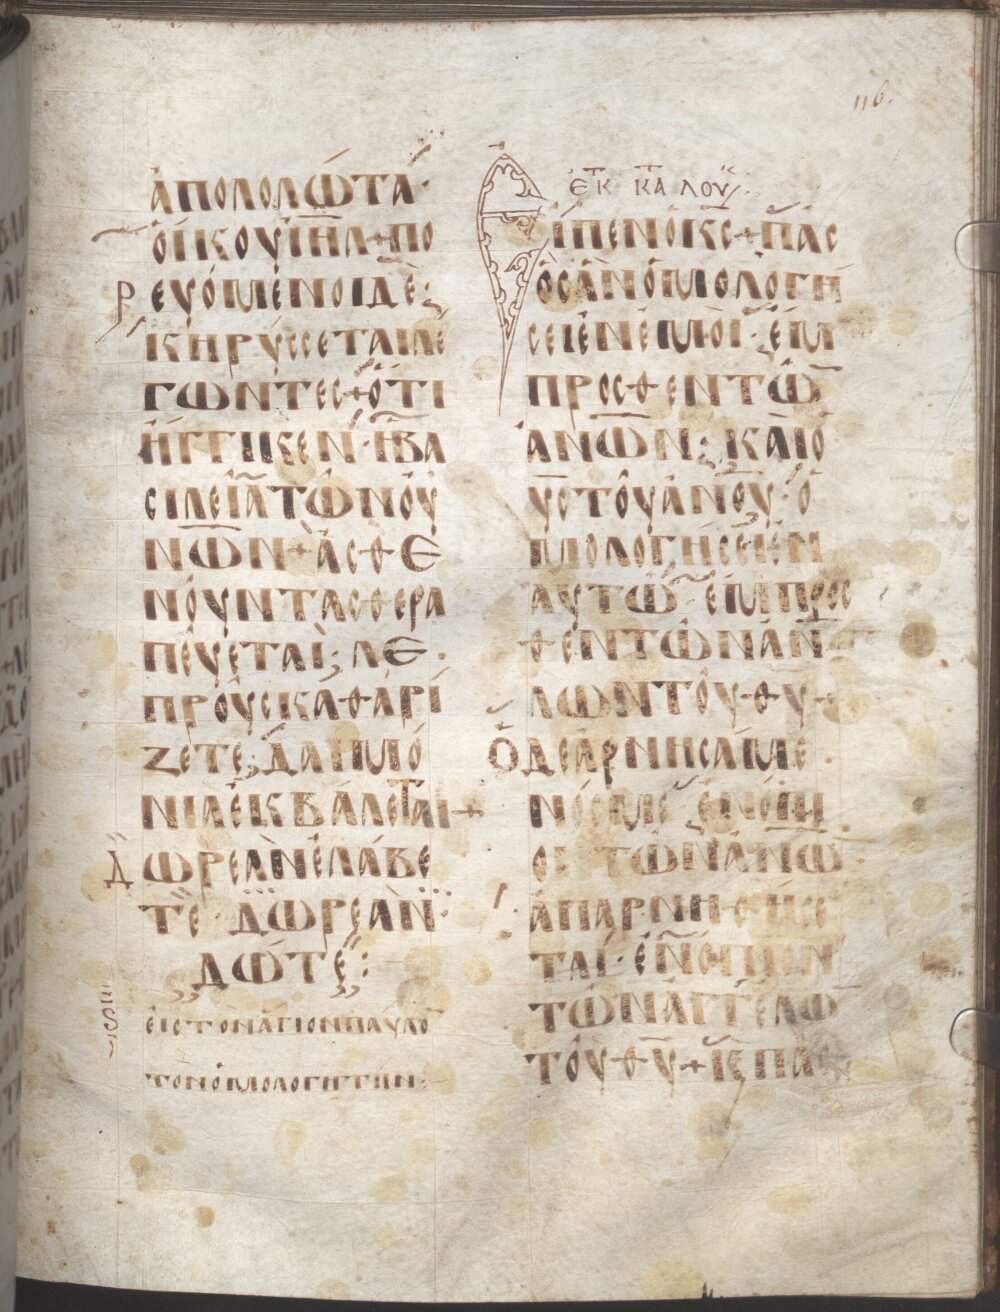 116.
ἀπολολῶτα·
ὀίκου ιη̅λ + πο
ρευόμενοι δὲ;
κηρύσσεται λέ
γωντες + ὅτι
ἤγγικεν· ἡ βα
σιλεῖα τῶν ου̅
νων + ἀσθε
νούντας θερα
πέυεται; λε·
προὺς καθαρί
ζετε; δαιμό
νια ἐκβάλεται +
δωρεὰν ἐλάβε
τε· δωρεὰν·
δώτε;
εἰς τὸν ἅγιον παύλο
τὸν ὁμολογητήν:
ἐκ τ κα λου
Εἶπεν ὁ κς + πᾶς
ὃς ἂν ὁμολογή
σει ἐν ἐμοι· ἐμ
προσθεν τῶ
ανων; καὶ ὁ
υς του ανου· ὁ
μολογήσει ἐν
αυτῶ ἐμπροσ
θεν τῶν αν
λων του θυ +
Ὁ δε ἀρνησάμε
νός με ἐνόπι
ον τῶν ανω
ἀπαρνηθήσε
ται· ἐνόπιον
τῶν ἀγγέλω
του θυ + κ πας